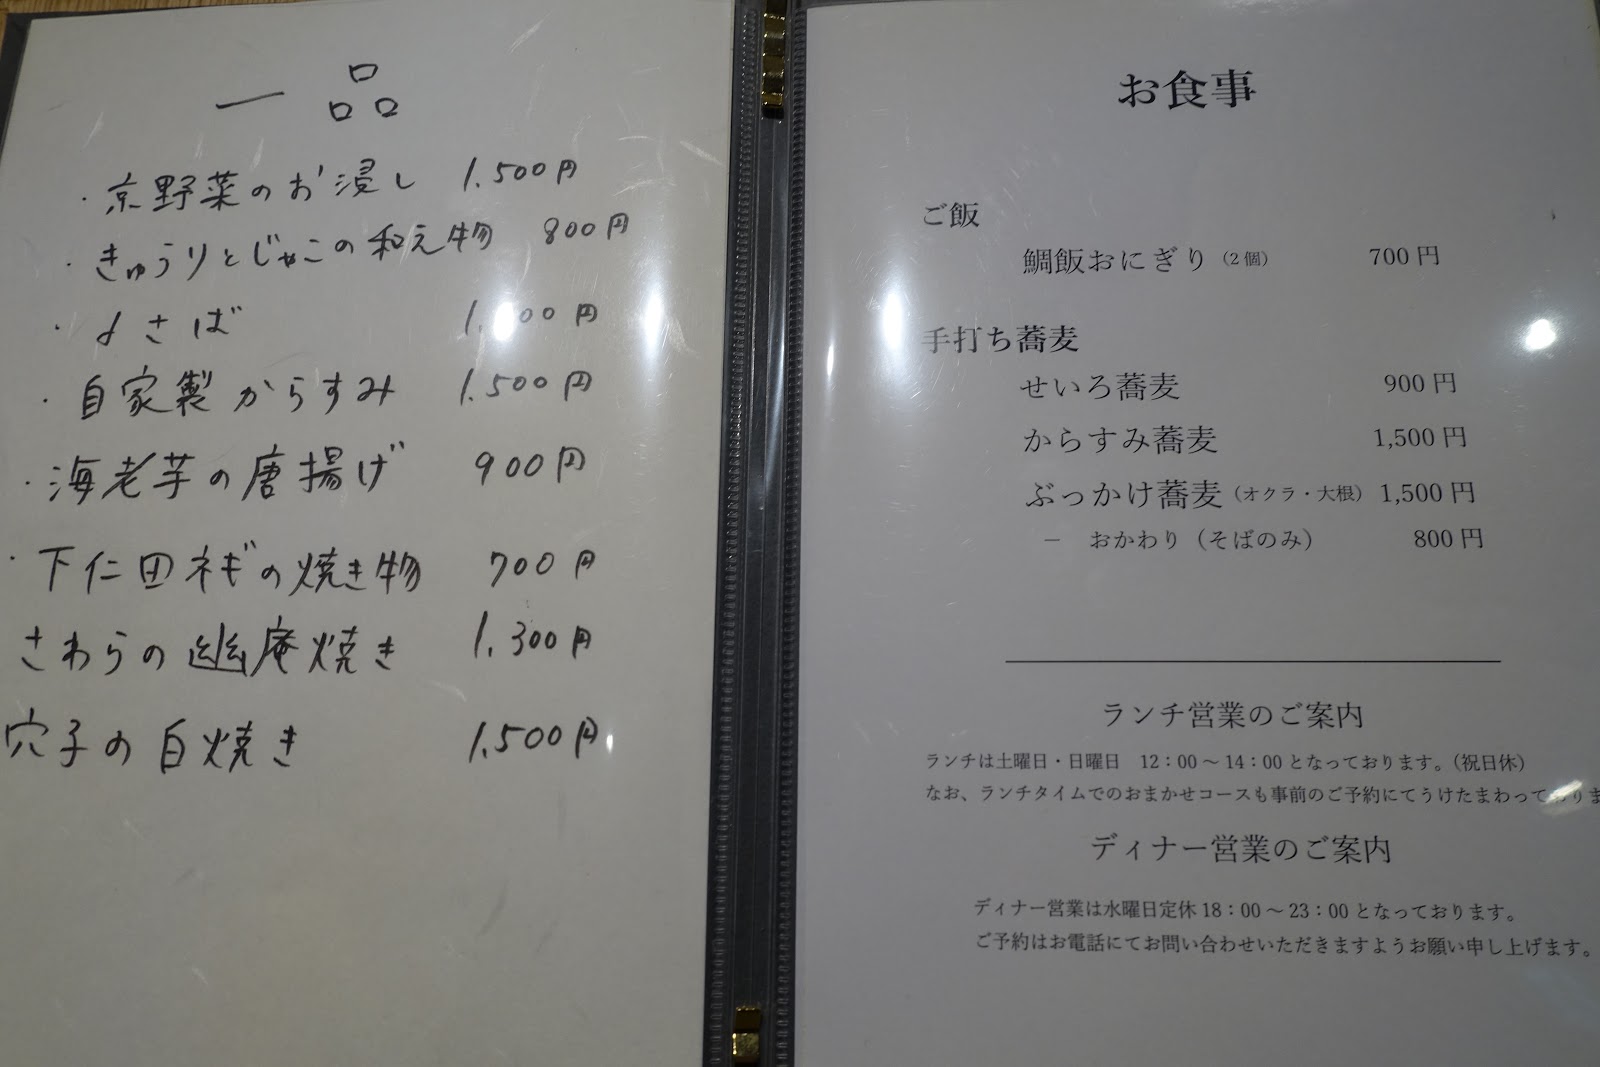 一品
・京野菜のお浸し 1.500円
・きゅうりとじゃこの和え物 800円
・〆さば 円
・自家製からすみ 1.500円
・海老芋の唐揚げ 900円
・下仁田ネギの焼き物 700円
さわらの幽庵焼き 1.300円
穴子の白焼き 1.500円
お食事
ご飯
鯛飯おにぎり(2個) 700円
手打ち蕎麦
せいろ蕎麦 900円
からすみ蕎麦 1,500円
ぶっかけ蕎麦(オクラ・大根) 1,500円
― おかわり(そばのみ) 800円
ランチ営業のご案内
ランチは土曜日・日曜日 12:00〜14:00となっております。(祝日休)
なお、ランチタイムでのおまかせコースも事前のご予約にてうけたまわっておりま
ディナー営業のご案内
ディナー営業は水曜日定休18:00〜23:00となっております。
ご予約はお電話にてお問い合わせいただきますようお願い申し上げます。